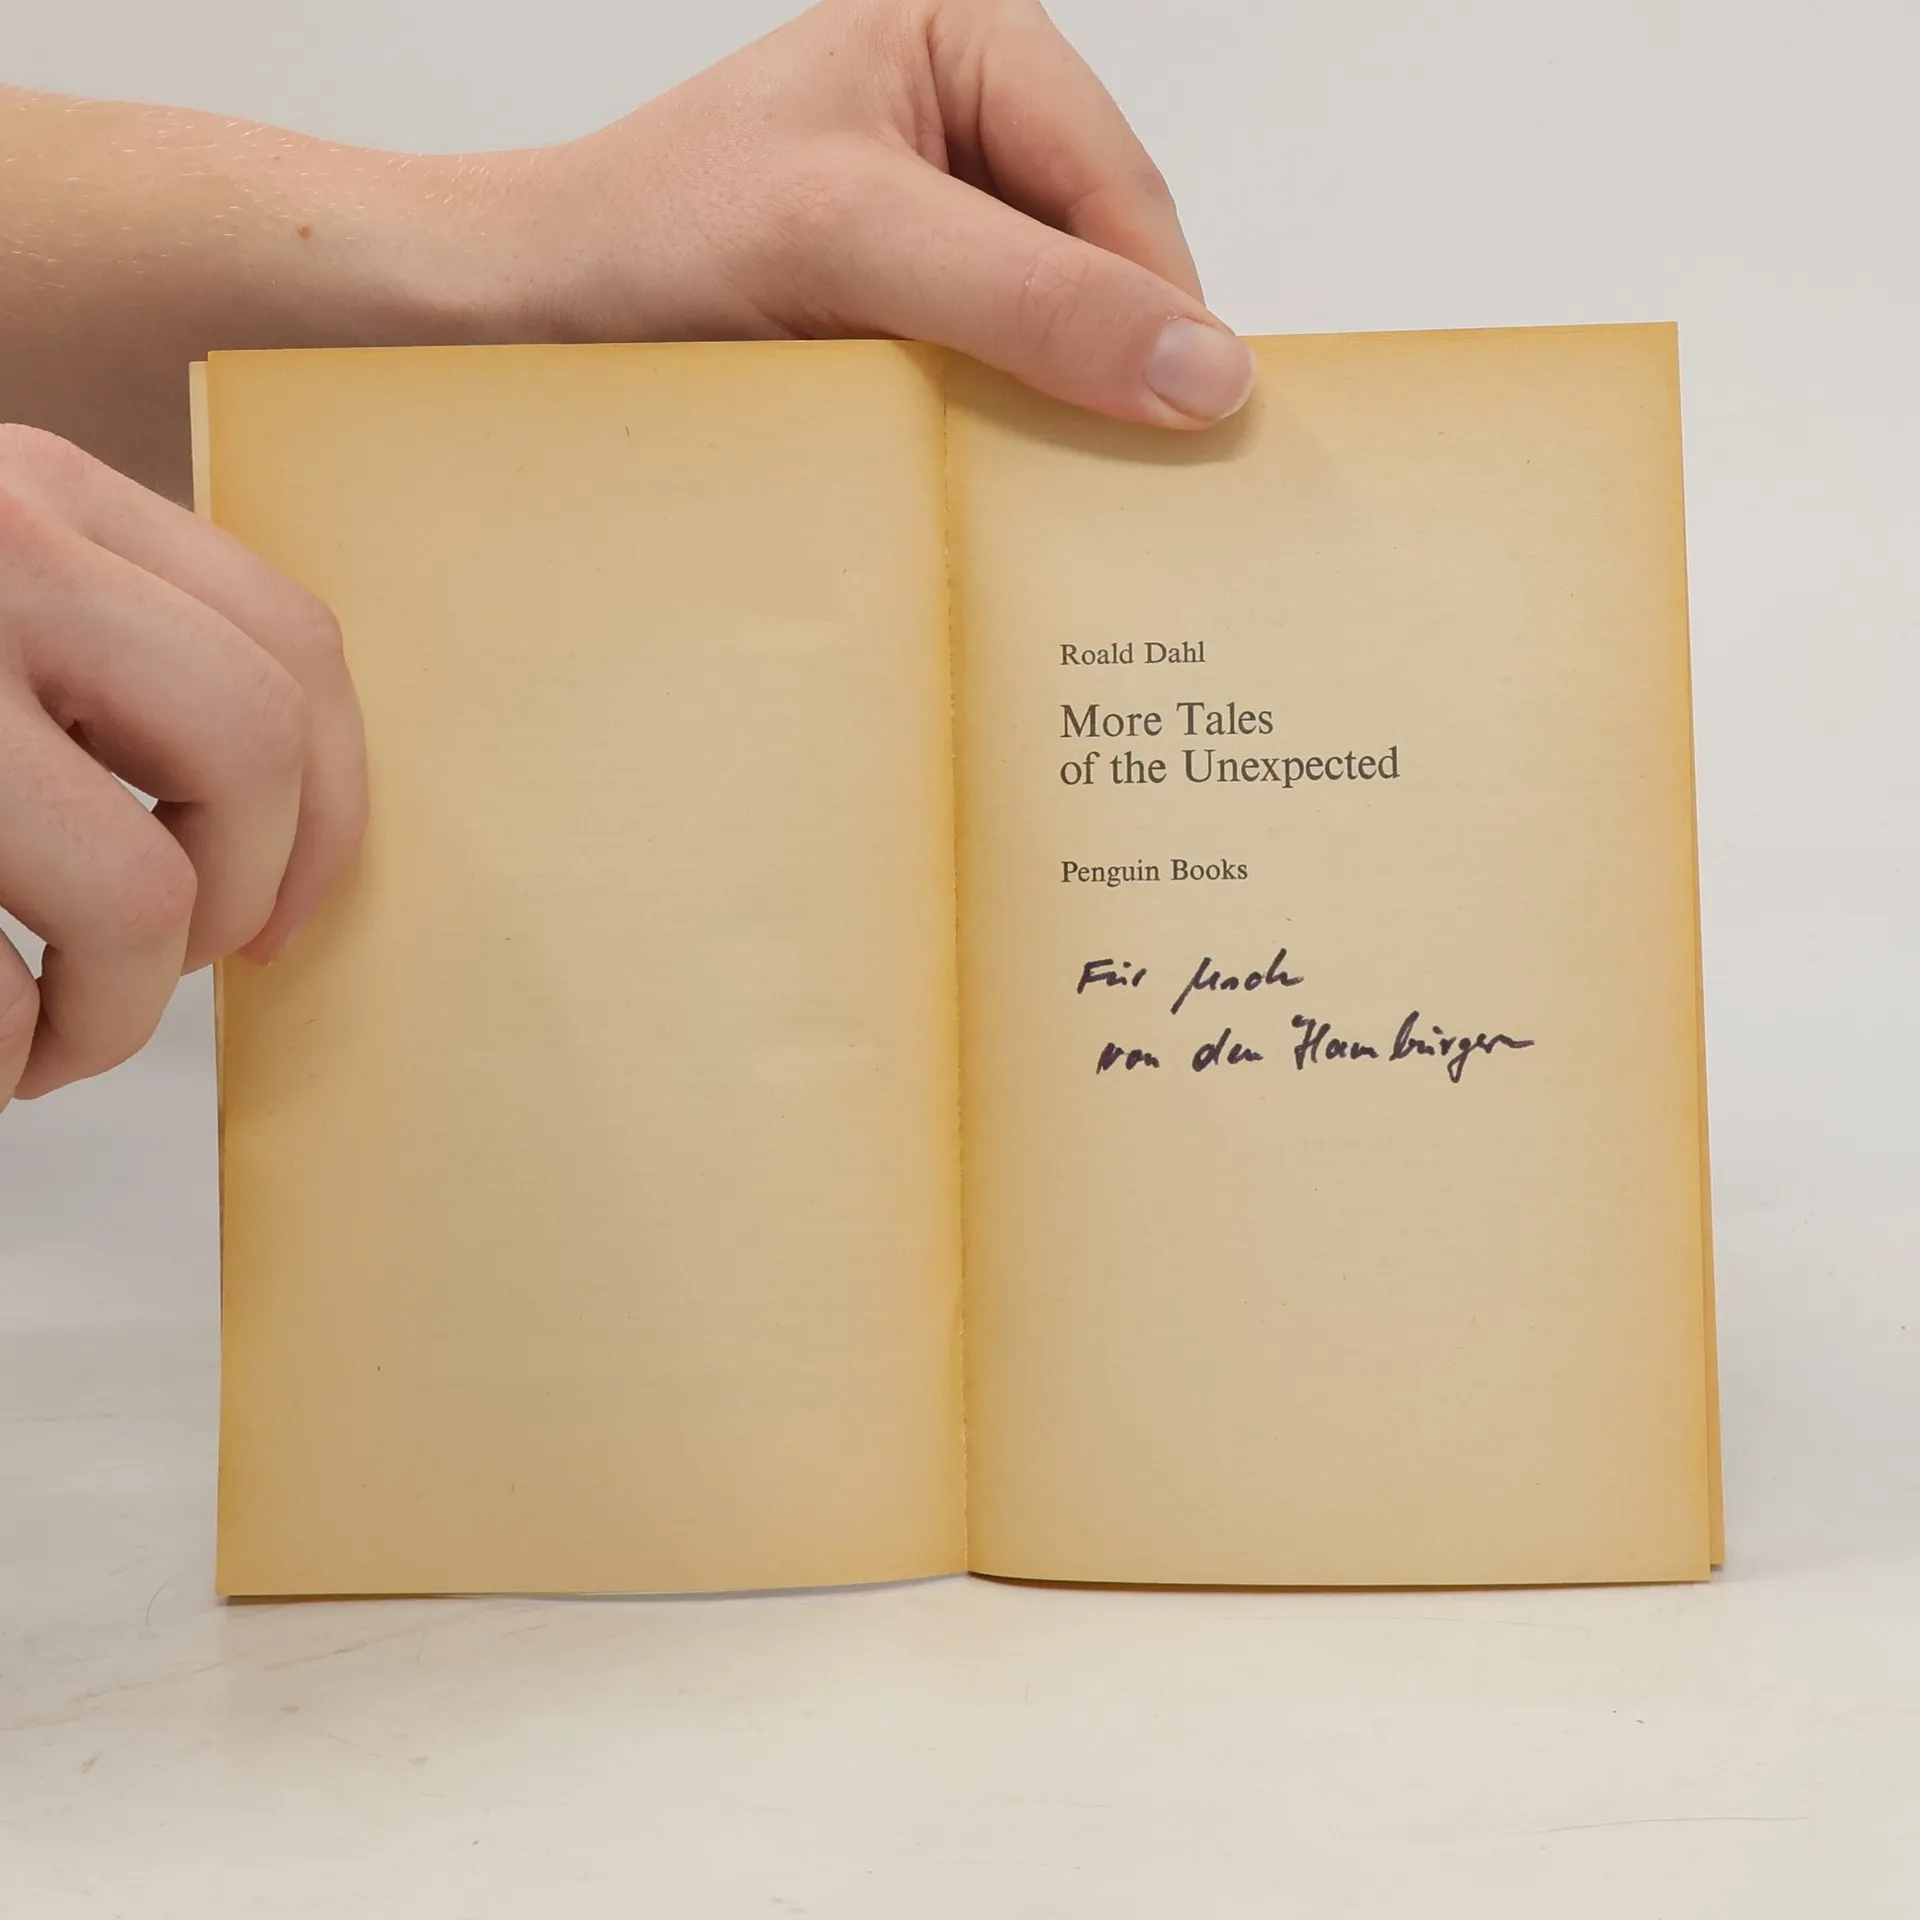 Roald Dahl
More Tales
of the Unexpected
Penguin Books
Für
von den Hamburgern